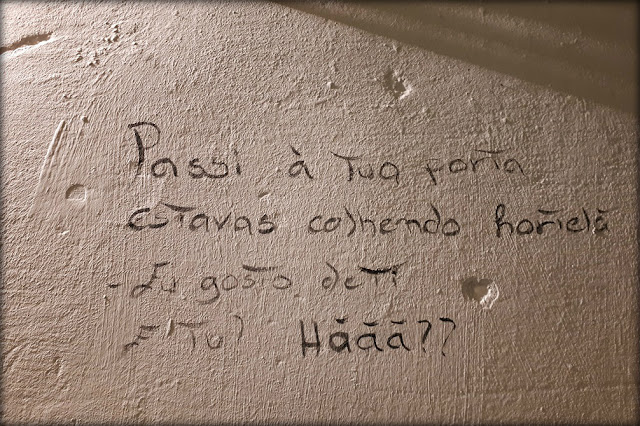 Passi à tua porta
estavas colhendo hortelã
- Eu gosto de ti
E tu? Hããã??